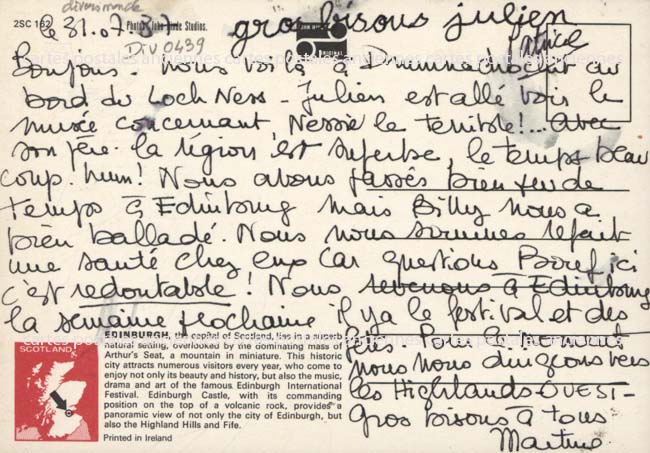 diversmonde
2SC 162
le 31.07.87
Studios.
DIV 0439
gros bisous julien
Patrice
Bonjour - nous voilà à Drumnadrochit au
bord du Loch Ness - Julien est allé voir le
musée concernant Nessie le terrible!... avec
son père. la région est superbe, le temps beau
coup. hum! Nous avons passés bien peu de
temps à Edinburg mais Billy nous a
bien balladé. Nous nous sommes refait
une santé chez eux car questions Bouef ici
c'est redoutable! Nous revenons à Edinburg
la semaine prochaine il y a le festival et des
nous nous dirigeons vers
les Highlands-OUEST-
gros bisous à tous
Martine
SCOTLAND
EDINBURGH, the capital of Scotland, lies in a superb
natural setting, overlooked by the dominating mass of
Arthur's Seat, a mountain in miniature. This historic
city attracts numerous visitors every year, who come to
enjoy not only its beauty and history, but also the music,
drama and art of the famous Edinburgh International
Festival. Edinburgh Castle, with its commanding
position on the top of a volcanic rock, provides a
panoramic view of not only the city of Edinburgh, but
also the Highland Hills and Fife.
Printed in Ireland